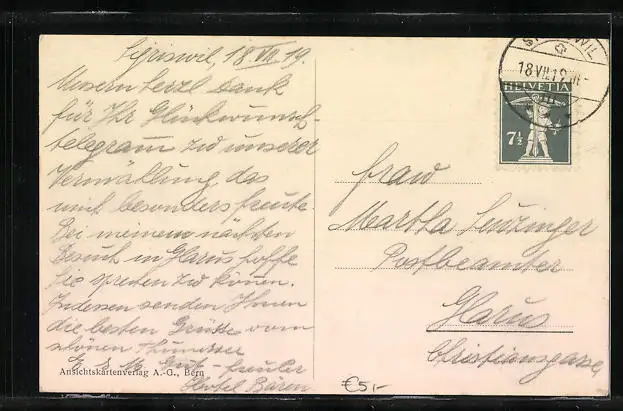 Sigriswil, 18.VII.19.
Unsern herzl. Dank
für Ihr Glückwunsch-
telegramm zu unserer
Vermählung, das
mich besonders freute.
Bei meinem nächsten
Besuch in Glarus hoffe
Sie sprechen zu können.
Indessen senden Ihnen
die besten Grüsse vom
schönen Thunersee
Hotel Bären
Ansichtskartenverlag A.-G., Bern
SIGRISWIL
18.VII.19
HELVETIA
7½
Frau
Martha
Postbeamter
Glarus
Christiangasse,
€5,-